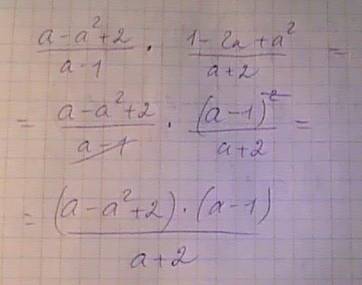 (a-a²+2)/(a-1) · (1-2a+a²)/(a+2) =
= (a-a²+2)/(a-1) · (a-1)²/(a+2) =
= ((a-a²+2)·(a-1))/(a+2)